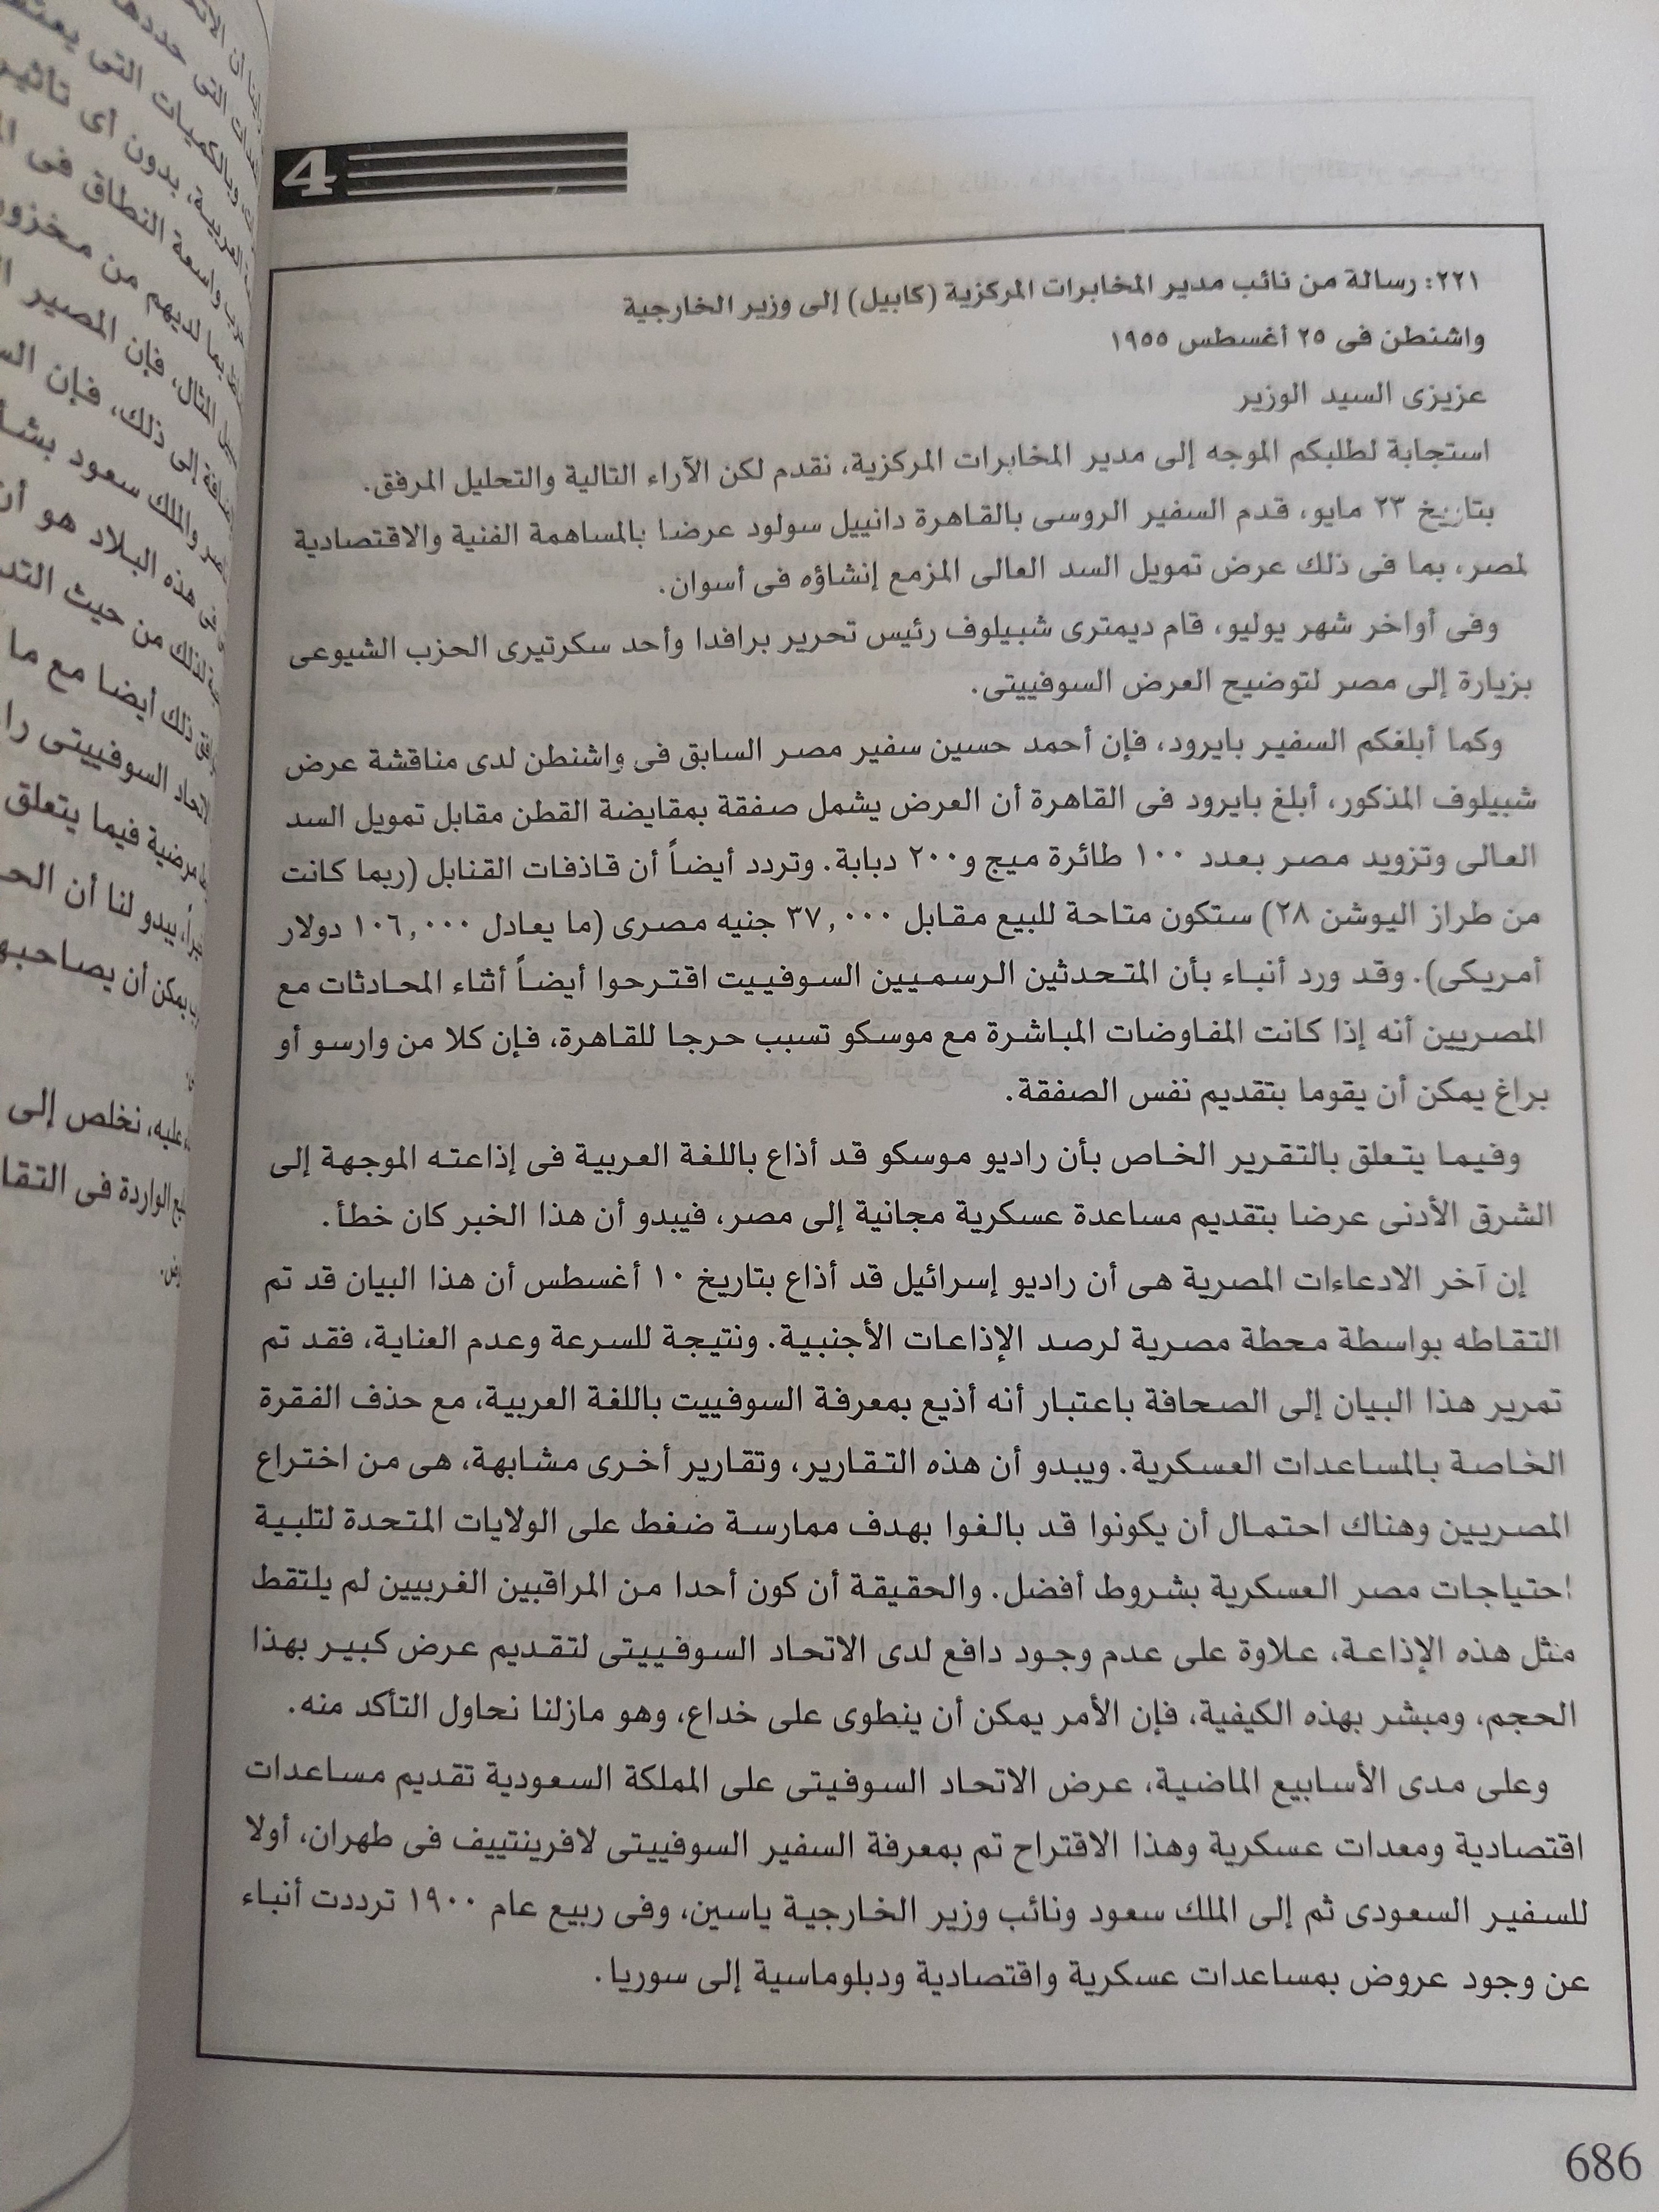 4
٢٢١: رسالة من نائب مدير المخابرات المركزية (كابيل) إلى وزير الخارجية
واشنطن فى ٢٥ أغسطس ١٩٥٥
عزيزى السيد الوزير
استجابة لطلبكم الموجه إلى مدير المخابرات المركزية، نقدم لكن الآراء التالية والتحليل المرفق.
بتاريخ ٢٣ مايو، قدم السفير الروسى بالقاهرة دانييل سولود عرضا بالمساهمة الفنية والاقتصادية
لمصر، بما فى ذلك عرض تمويل السد العالى المزمع إنشاؤه فى أسوان.
وفى أواخر شهر يوليو، قام ديمترى شبيلوف رئيس تحرير برافدا وأحد سكرتيرى الحزب الشيوعى
بزيارة إلى مصر لتوضيح العرض السوفييتى.
وكما أبلغكم السفير بايرود، فإن أحمد حسين سفير مصر السابق فى واشنطن لدى مناقشة عرض
شبيلوف المذكور، أبلغ بايرود فى القاهرة أن العرض يشمل صفقة بمقايضة القطن مقابل تمويل السد
العالى وتزويد مصر بعدد ١٠٠ طائرة ميج و٢٠٠ دبابة. وتردد أيضاً أن قاذفات القنابل (ربما كانت
من طراز اليوشن ٢٨) ستكون متاحة للبيع مقابل ٣٧,٠٠٠ جنيه مصرى (ما يعادل ١٠٦,٠٠٠ دولار
أمريكى). وقد ورد أنباء بأن المتحدثين الرسميين السوفييت اقترحوا أيضاً أثناء المحادثات مع
المصريين أنه إذا كانت المفاوضات المباشرة مع موسكو تسبب حرجا للقاهرة، فإن كلا من وارسو أو
براغ يمكن أن يقوما بتقديم نفس الصفقة.
وفيما يتعلق بالتقرير الخاص بأن راديو موسكو قد أذاع باللغة العربية فى إذاعته الموجهة إلى
الشرق الأدنى عرضا بتقديم مساعدة عسكرية مجانية إلى مصر، فيبدو أن هذا الخبر كان خطأ.
إن آخر الادعاءات المصرية هى أن راديو إسرائيل قد أذاع بتاريخ ١٠ أغسطس أن هذا البيان قد تم
التقاطه بواسطة محطة مصرية لرصد الإذاعات الأجنبية. ونتيجة للسرعة وعدم العناية، فقد تم
تمرير هذا البيان إلى الصحافة باعتبار أنه أذيع بمعرفة السوفييت باللغة العربية، مع حذف الفقرة
الخاصة بالمساعدات العسكرية. ويبدو أن هذه التقارير، وتقارير أخرى مشابهة، هى من اختراع
المصريين وهناك احتمال أن يكونوا قد بالغوا بهدف ممارسة ضغط على الولايات المتحدة لتلبية
احتياجات مصر العسكرية بشروط أفضل. والحقيقة أن كون أحدا من المراقبين الغربيين لم يلتقط
مثل هذه الإذاعة، علاوة على عدم وجود دافع لدى الاتحاد السوفييتى لتقديم عرض كبير بهذا
الحجم، ومبشر بهذه الكيفية، فإن الأمر يمكن أن ينطوى على خداع، وهو مازلنا نحاول التأكد منه.
وعلى مدى الأسابيع الماضية، عرض الاتحاد السوفيتى على المملكة السعودية تقديم مساعدات
اقتصادية ومعدات عسكرية وهذا الاقتراح تم بمعرفة السفير السوفييتى لافرينتييف فى طهران، أولا
للسفير السعودى ثم إلى الملك سعود ونائب وزير الخارجية ياسين، وفى ربيع عام ١٩٠٠ ترددت أنباء
عن وجود عروض بمساعدات عسكرية واقتصادية ودبلوماسية إلى سوريا.
686